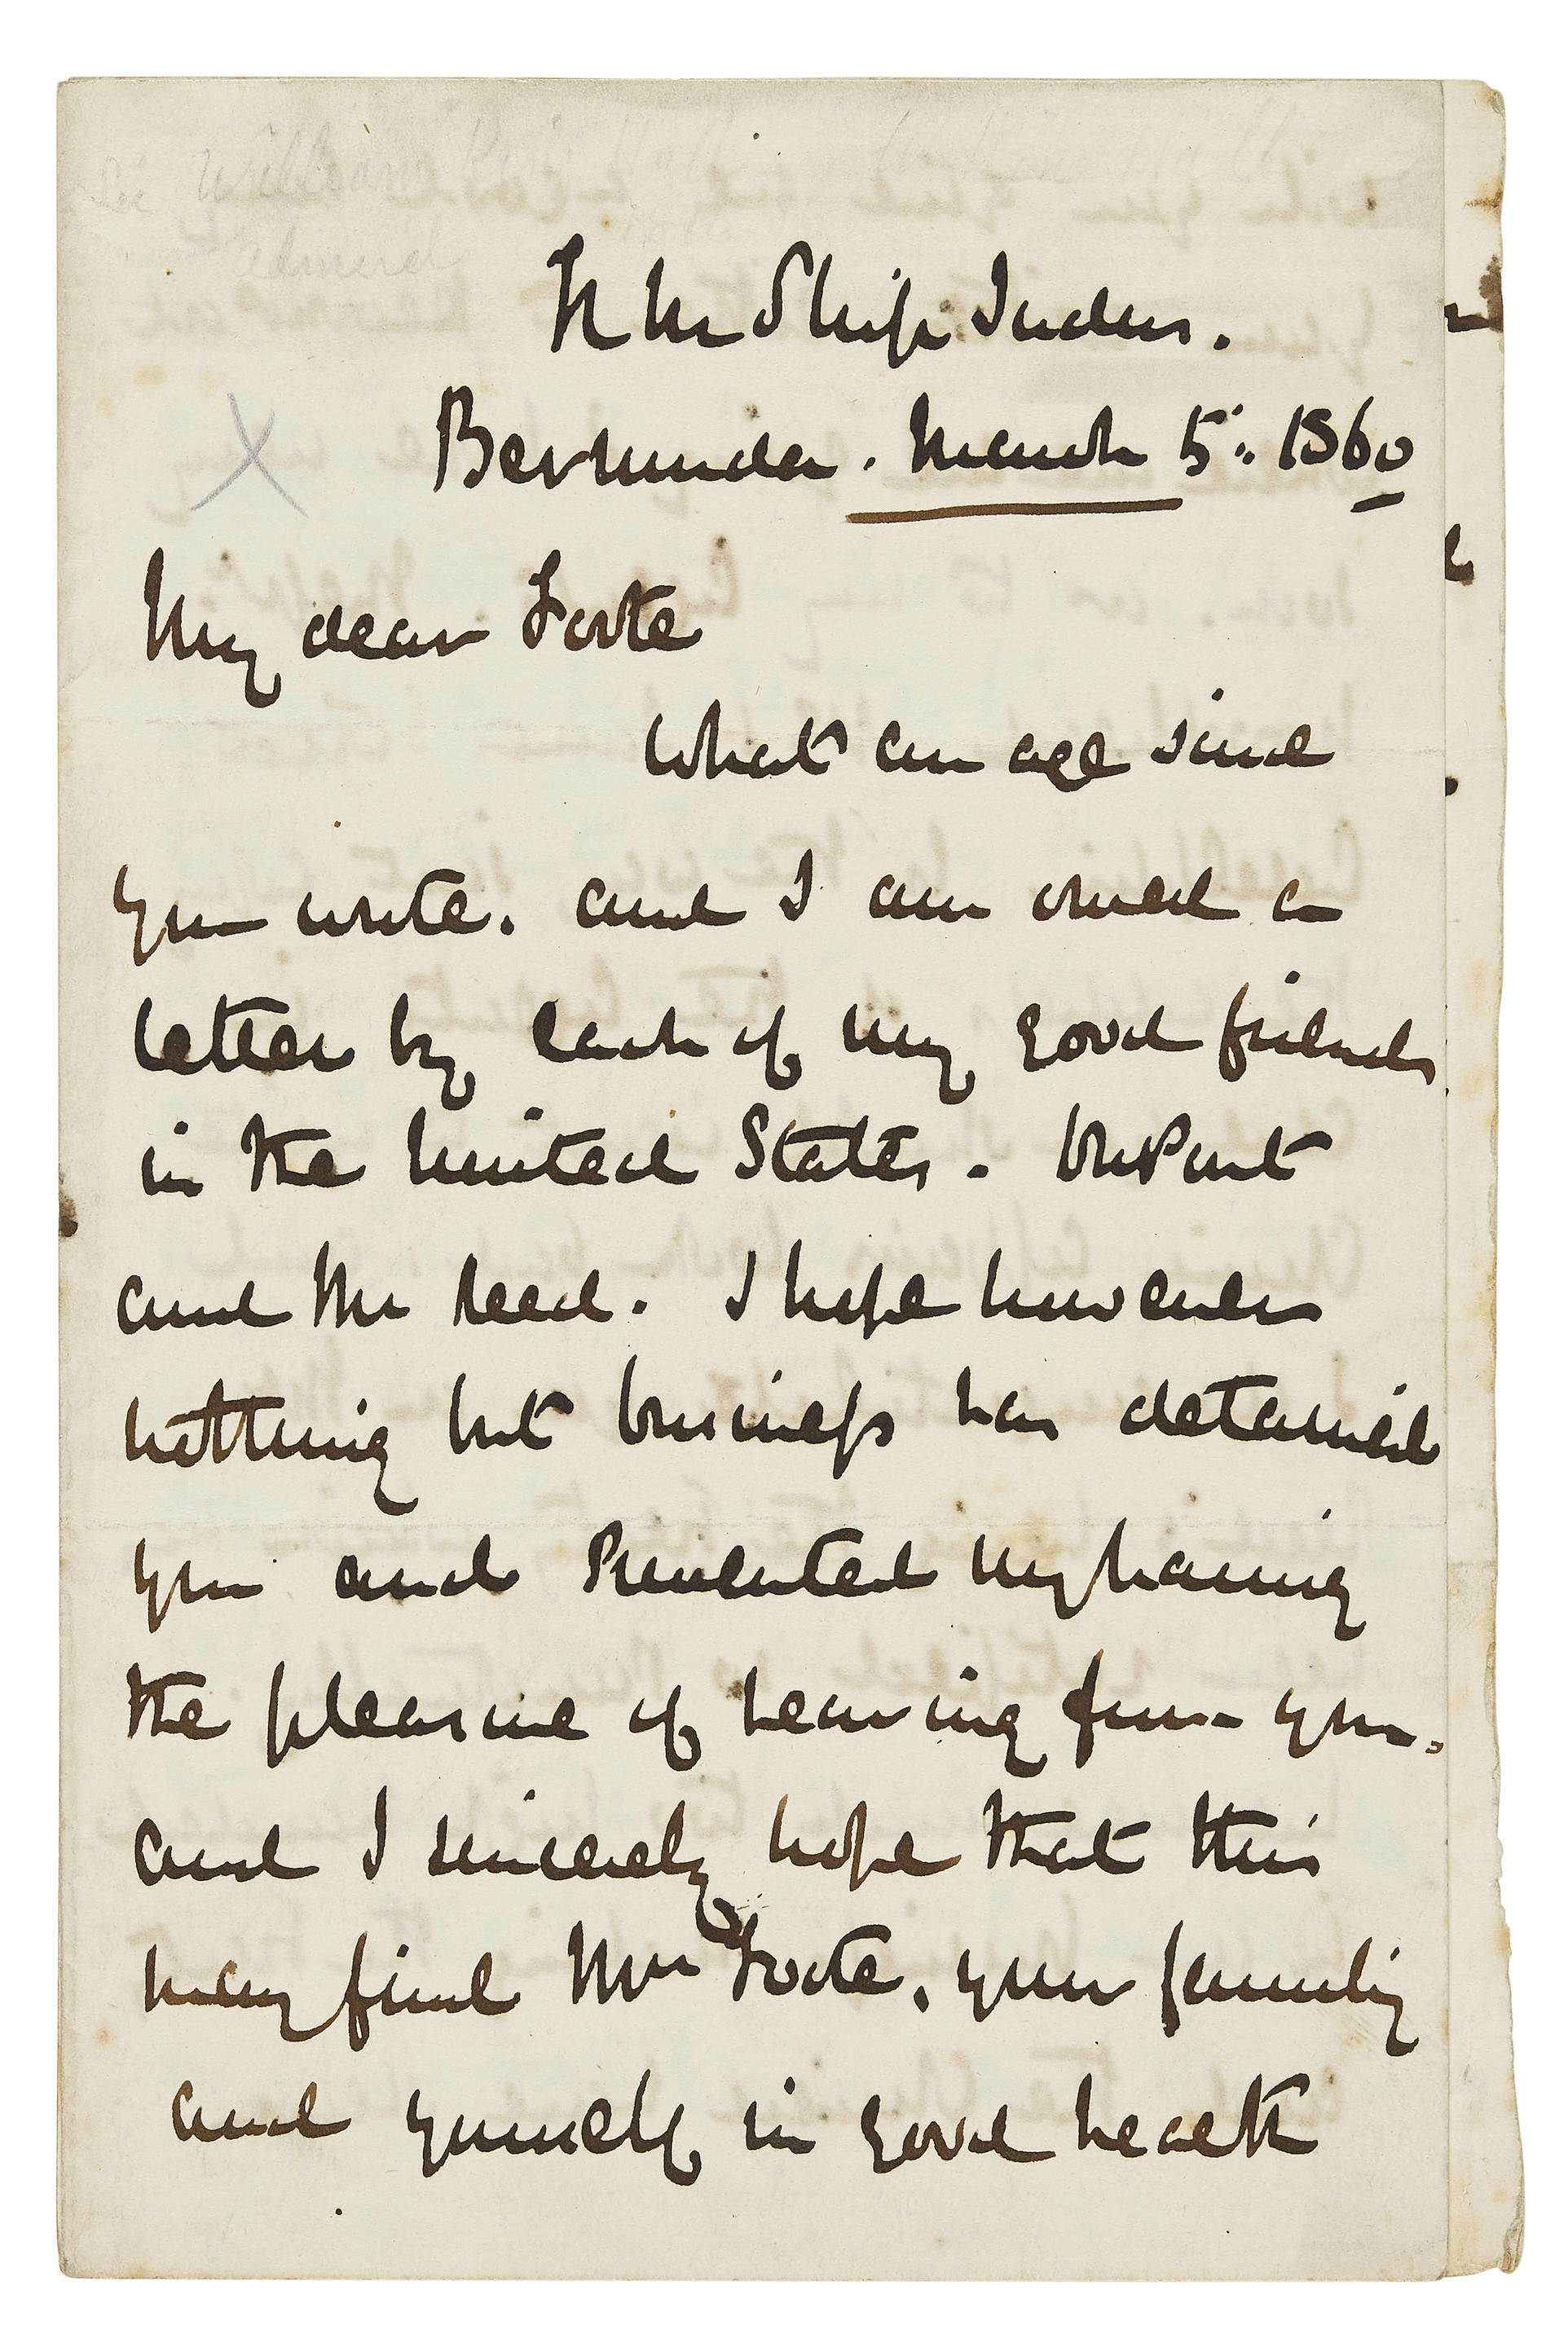 Sir William
Admiral
H M Ship Indus.
Bermuda. March 5th 1860
My dear Foote
What an age since
you wrote. and I am owed a
letter by each of my good friends
in the United States. DuPont
and Mr Reed. I hope however
nothing but business has detained
you and Prevented my having
the pleasure of hearing from you.
and I sincerely hope that this
may find Mrs Foote, your family
and yourself in good health